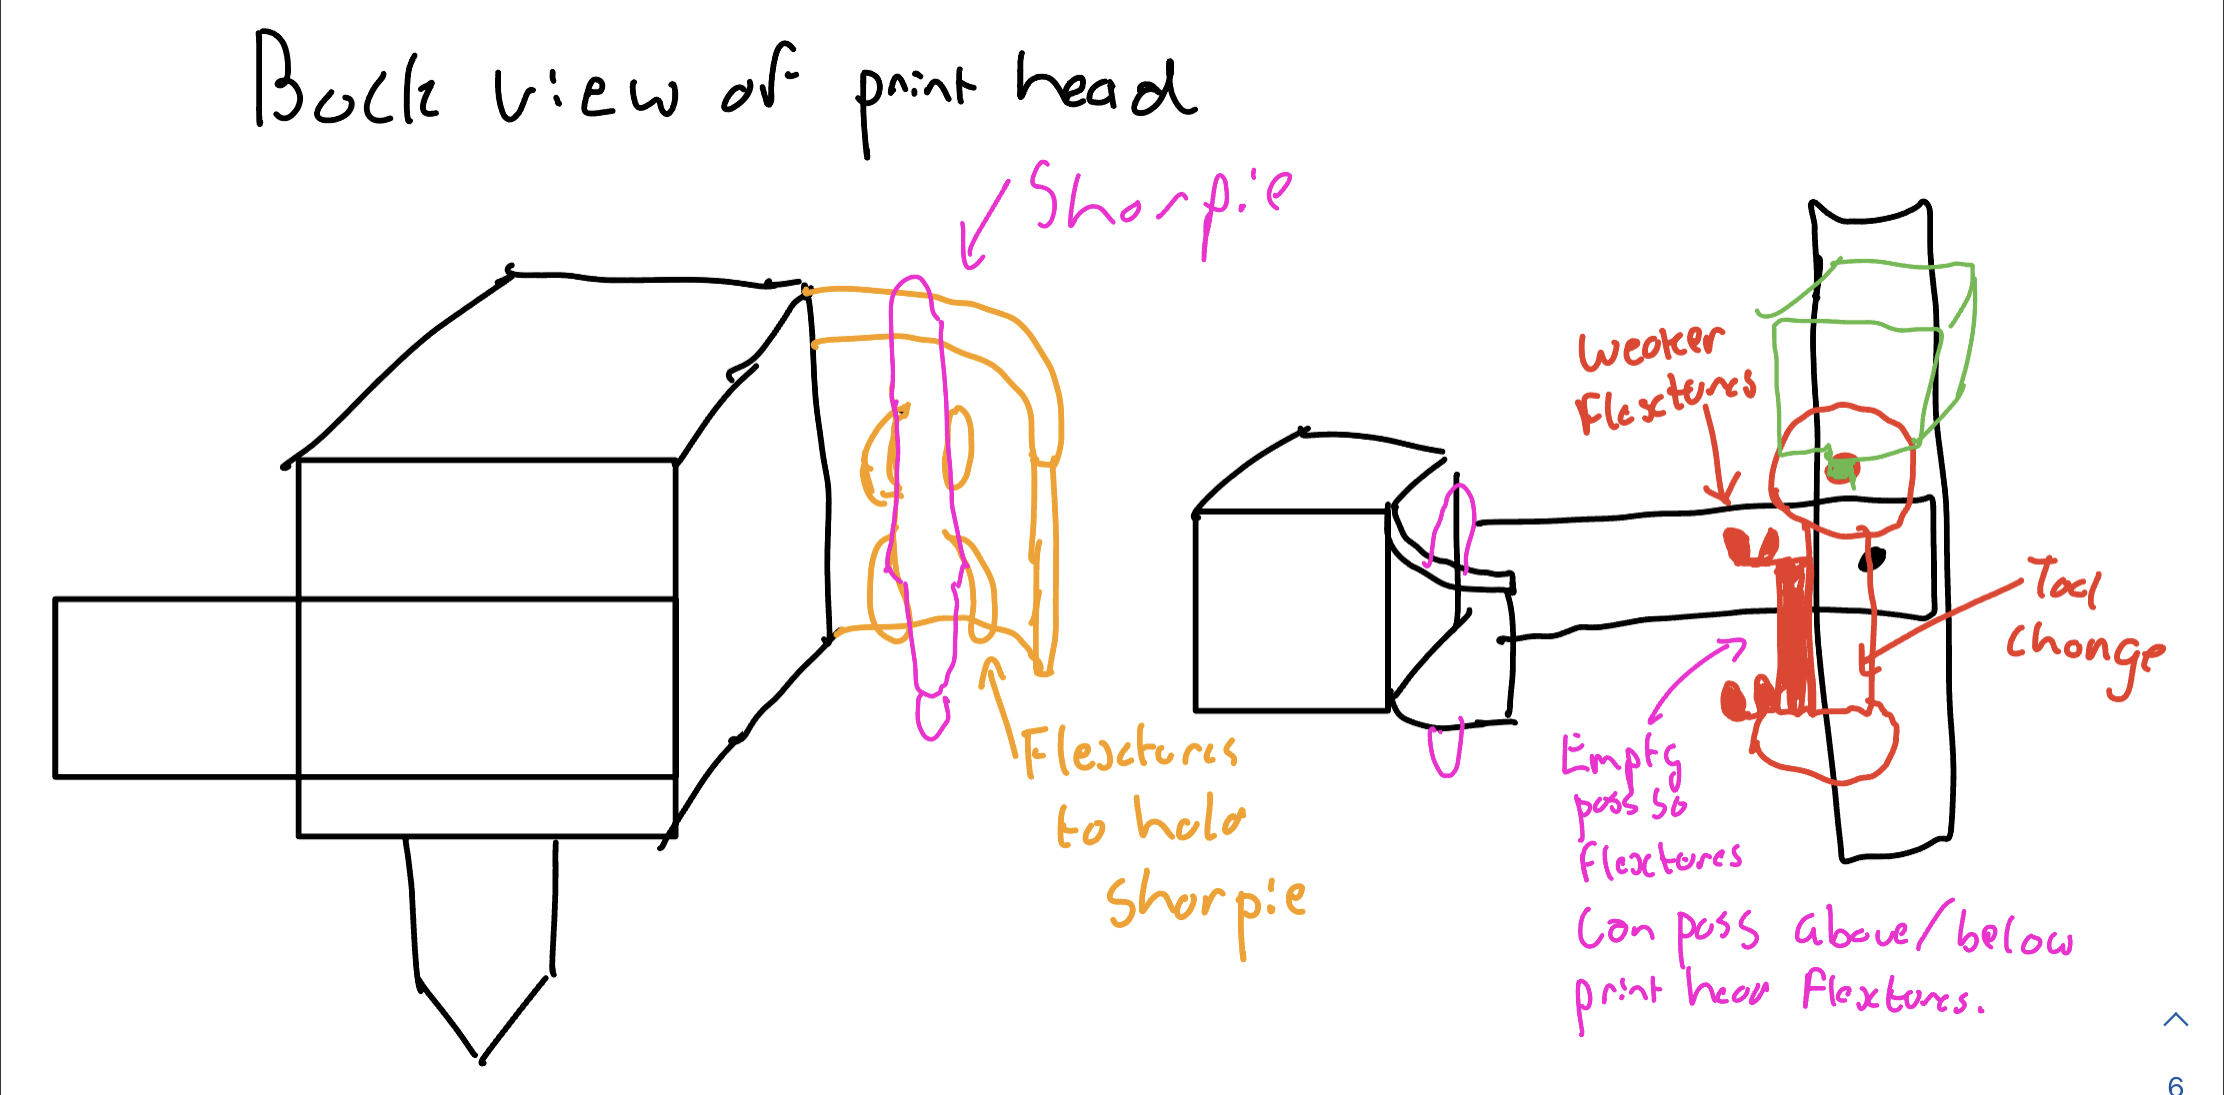 Back view of print head
Sharpie
Weaker
Flextures
Tool
change
Flextures
to hold
Sharpie
Empty
pass so
flextures
Can pass above/below
print head flextures.
6